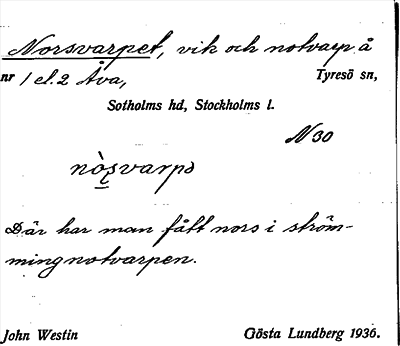 Norsvarpet, vik och notvarp å
nr 1 el. 2 Åva, Tyresö sn,
Sotholms hd, Stockholms l.
N 30
Där har man fått nors i ström-
mingnotvarpen.
John Westin Gösta Lundberg 1936.